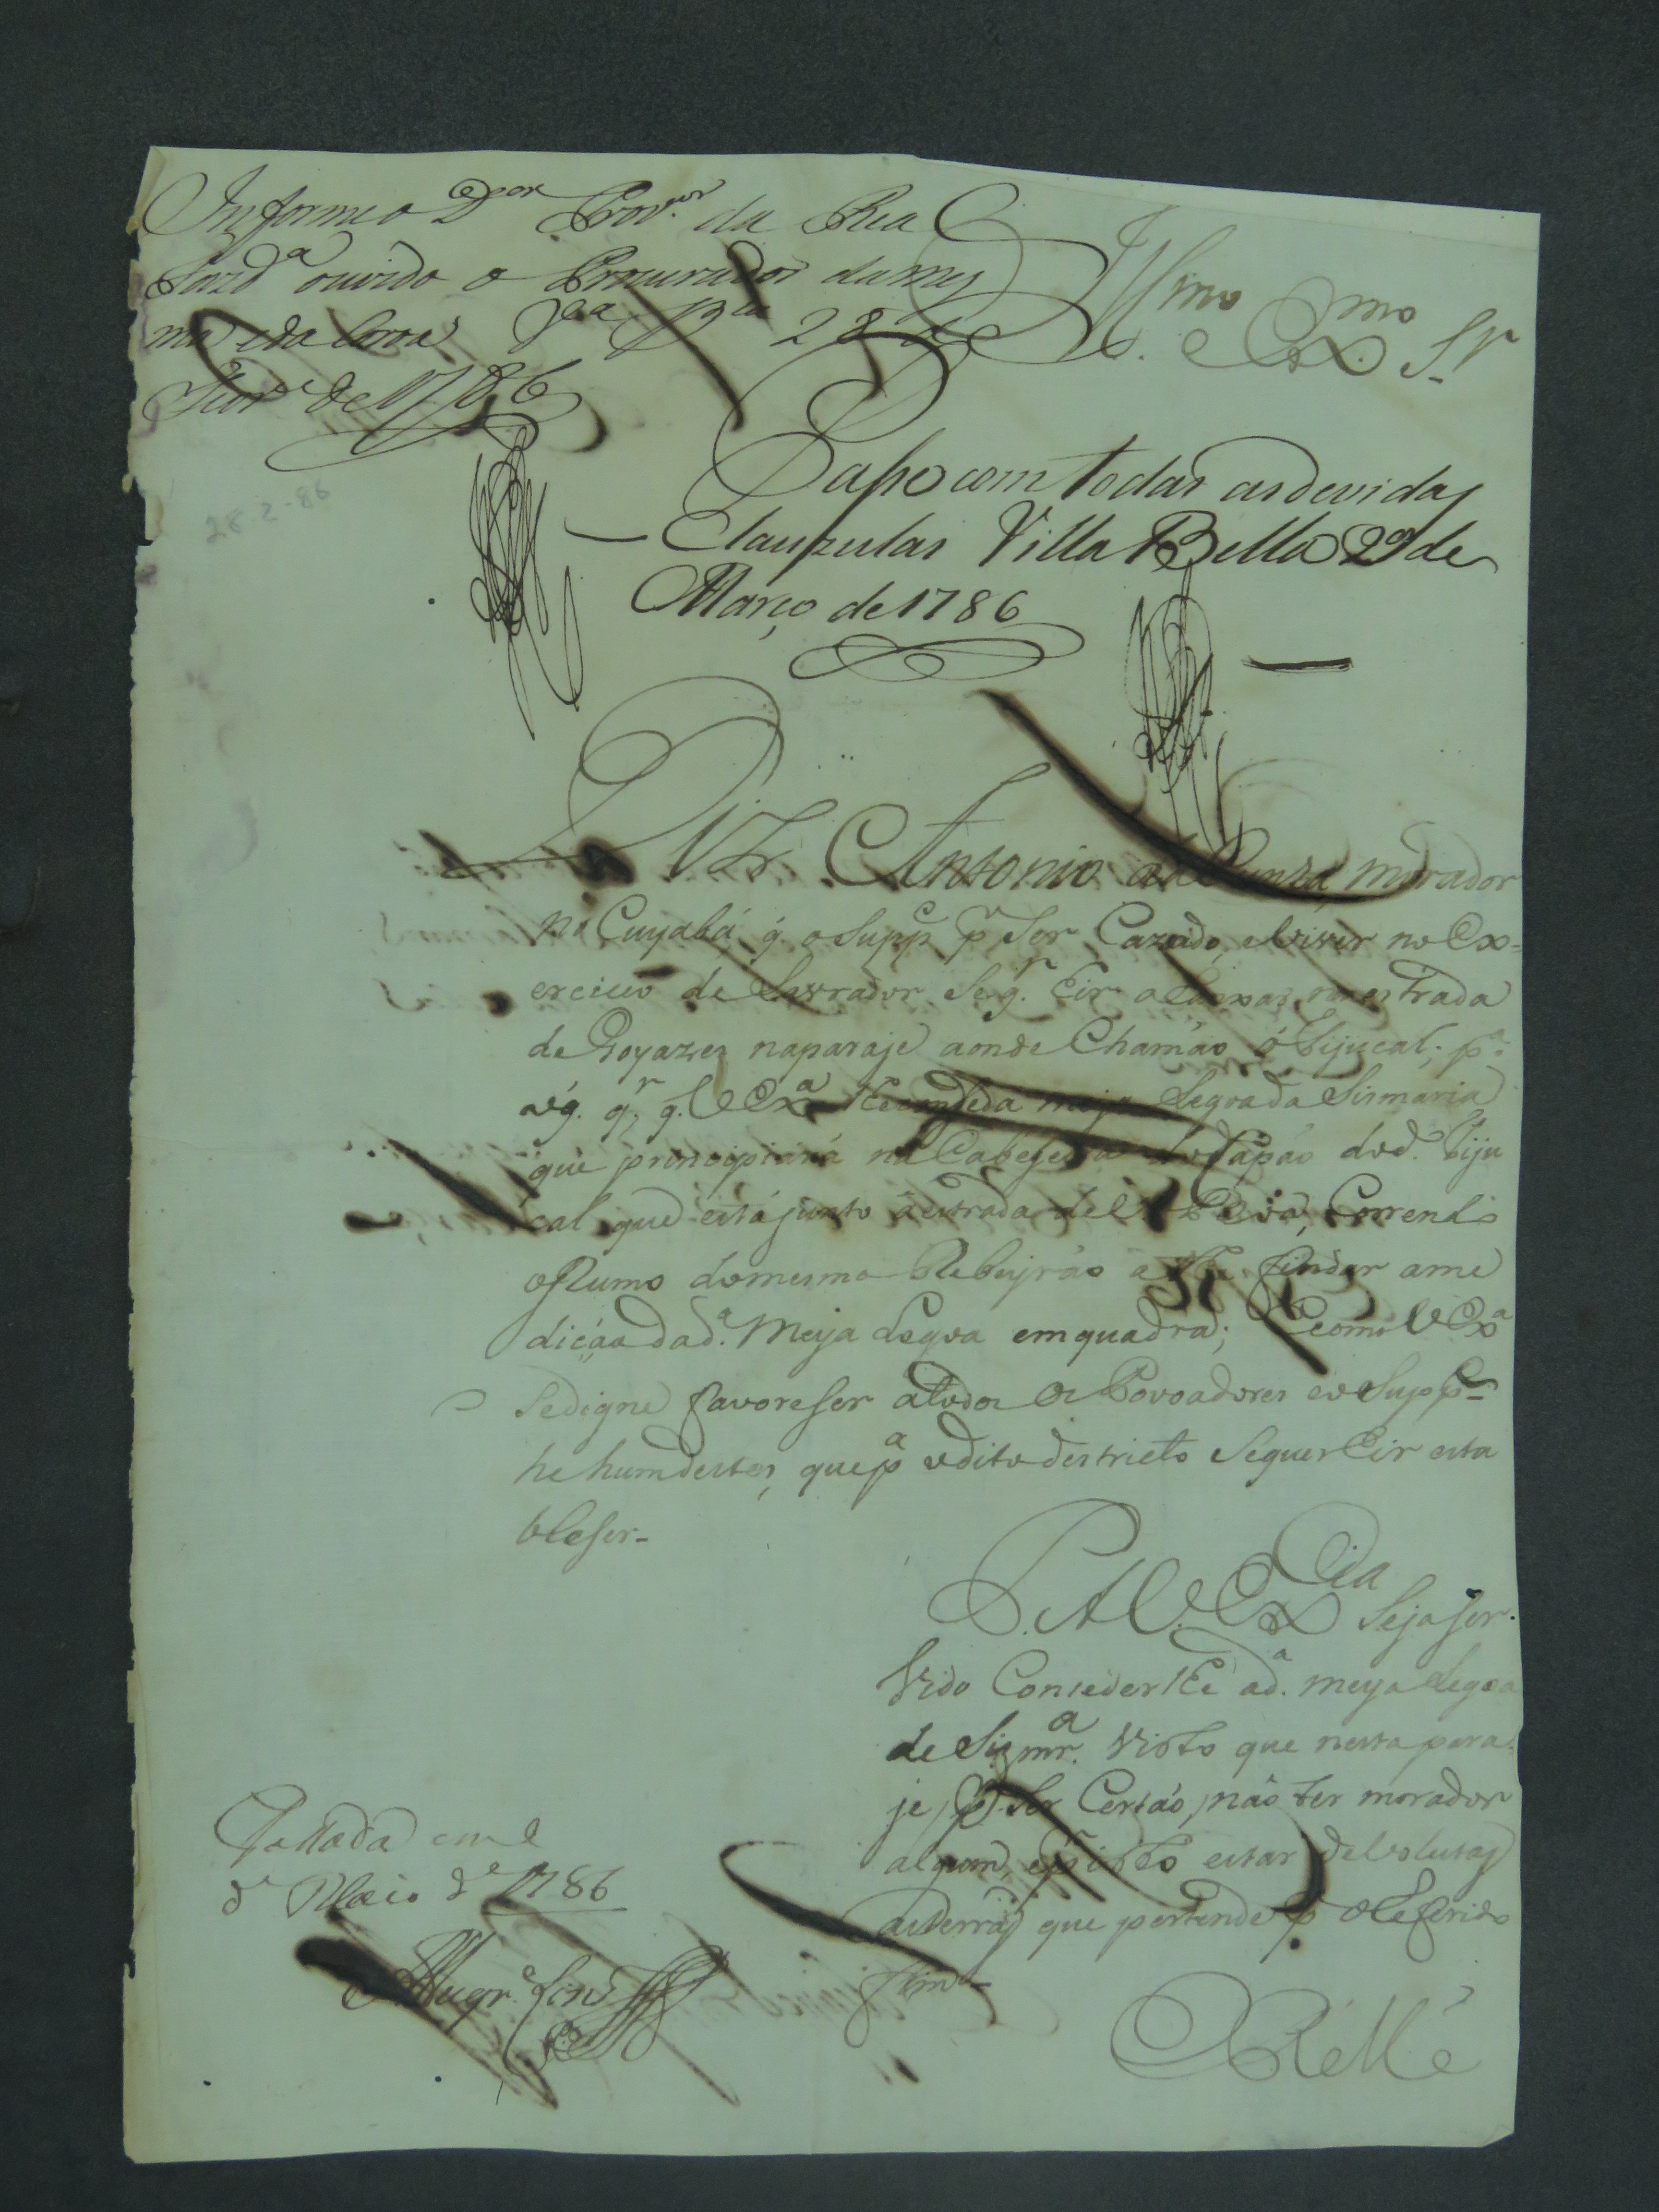 Informe o D.or Prov.or da Real
Fazd.a ouvido o Procurador da mes
ma e da Coroa V.a B.la 28 de
Fevr.o de 1786
Illmo e Ex.mo Sr
28-2-86
Passe com todas as devidas
Clauzulas Villa Bella 29 de
Março de 1786
Diz Antonio da Cunha, morador
no Cuyabá, q. o Supp.e p.r Ser Cazado, e Viver no Ex=
ercicio de Lavrador Se q.r hir a na estrada
de Goyazes na paraje aonde Chamão o Tijucal; p.a
o q. q.r q. V Ex.a lhe conseda meja Legoa da Sismaria
que principiará na Cabeseira do Capão do d.o Tiju
cal que está junto á estrada Correndo
o Rumo do mesmo Ribeyrão athe findar a me
dição da d.a Meja Legoa em quadra; E como V Ex.a
Se digne favoreser a todos os Povoadores e o Supp.e
he hum destes, que p.a o dito destricto Se quer hir esta
bleser-
P. A V. Ex.cia Seja Ser.
Vido Conseder lhe a d.a meya Legoa
de Sizmr.a Visto que nesta para
je, p.r Ser Certão, não ter morador
algum, e p.r isto estar devolutas
as terras que pertende p.a o Referido
fim-
E R Mce
Passada em
d.e Maio d.e 1786